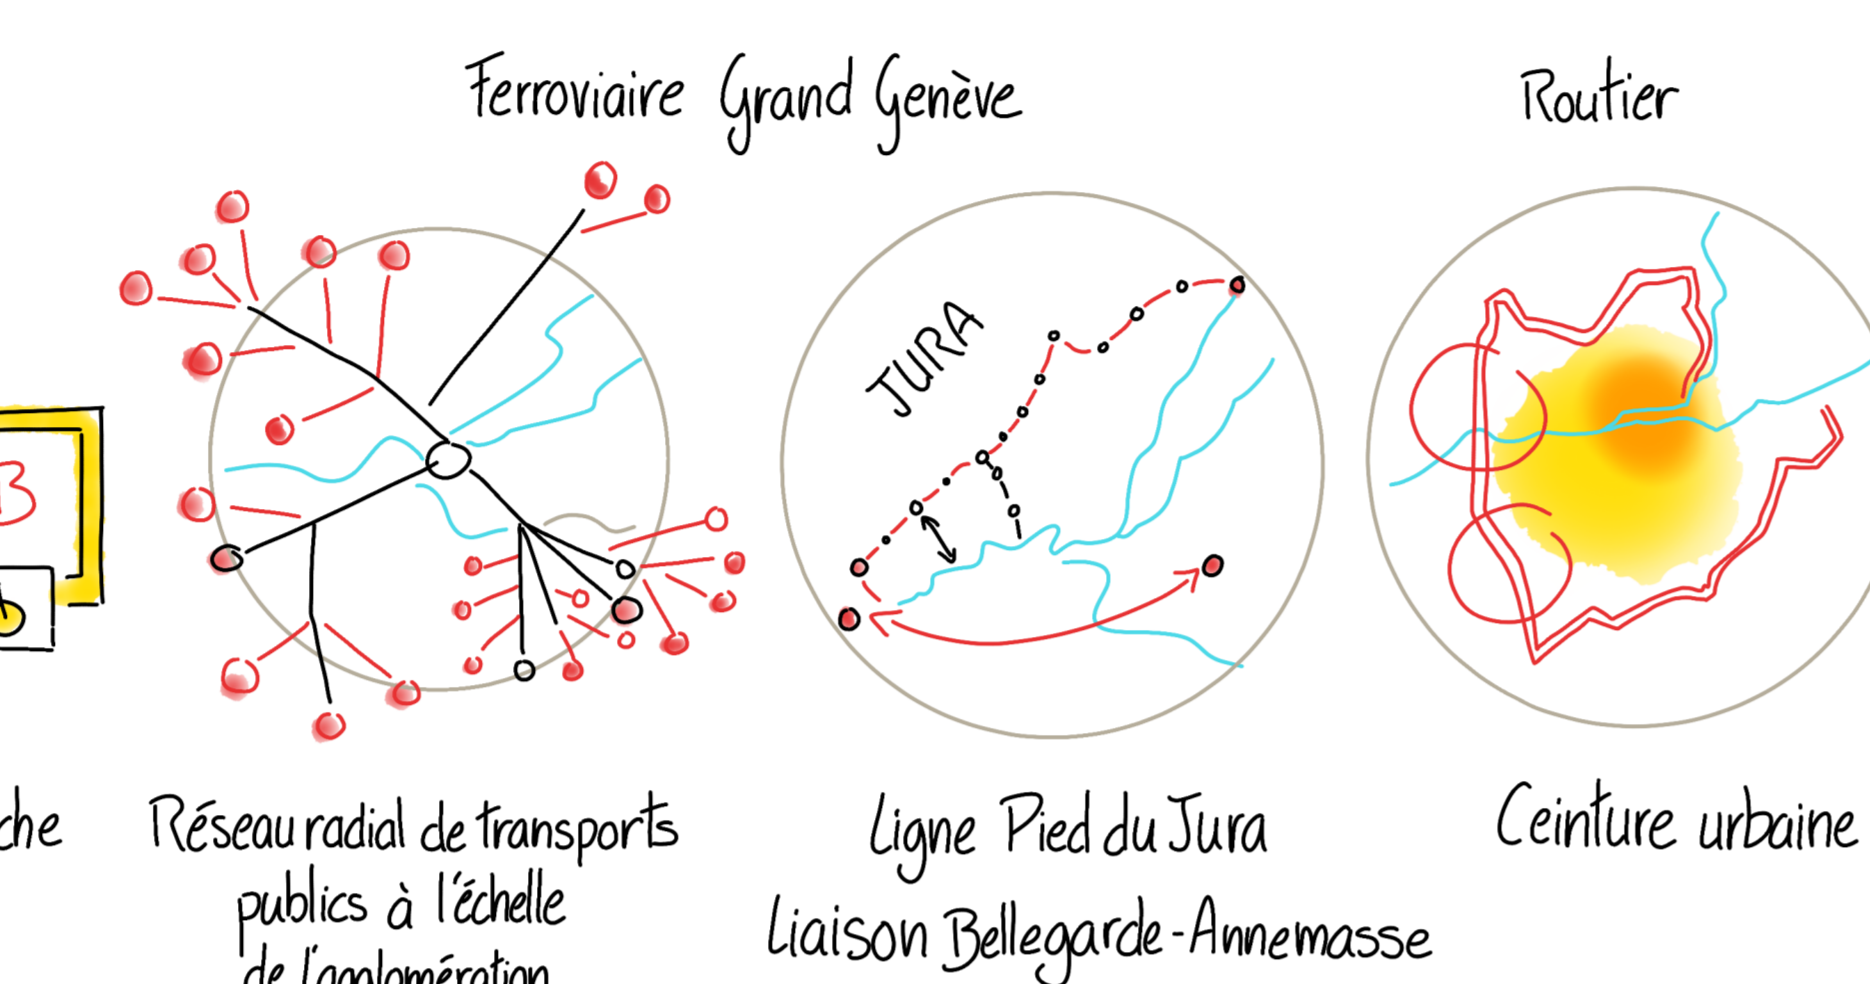 Ferroviaire Grand Genève
Routier
JURA
B
che
Réseau radial de transports
publics à l'échelle
de l'agglomération
Ligne Pied du Jura
Liaison Bellegarde-Annemasse
Ceinture urbaine